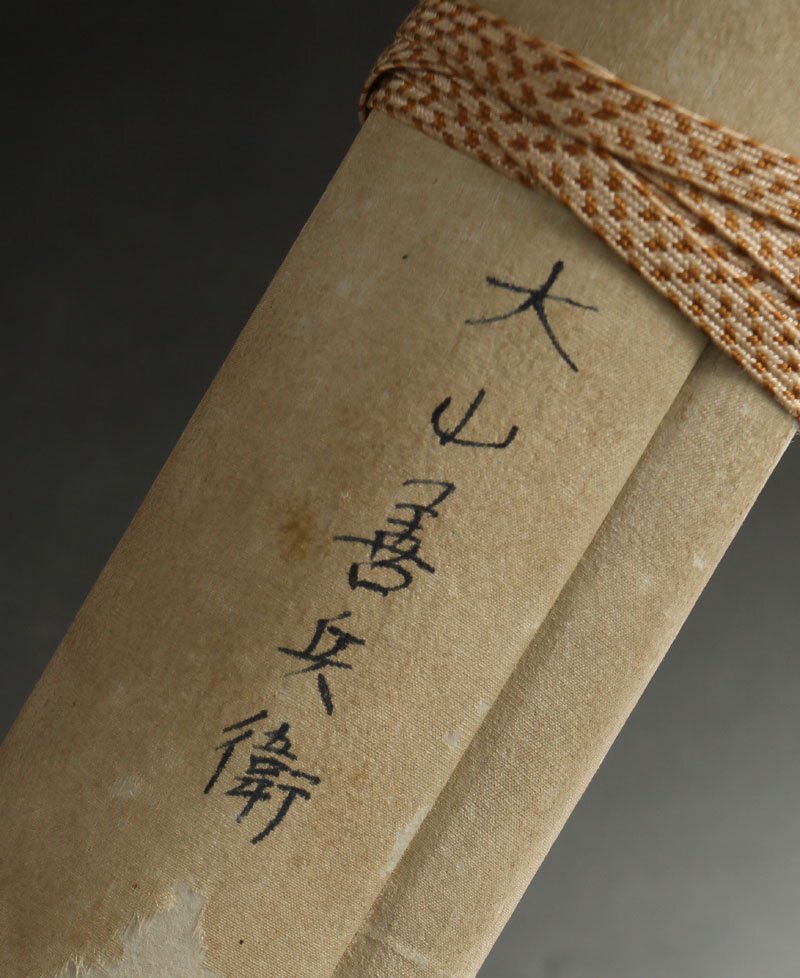 大山善兵衛